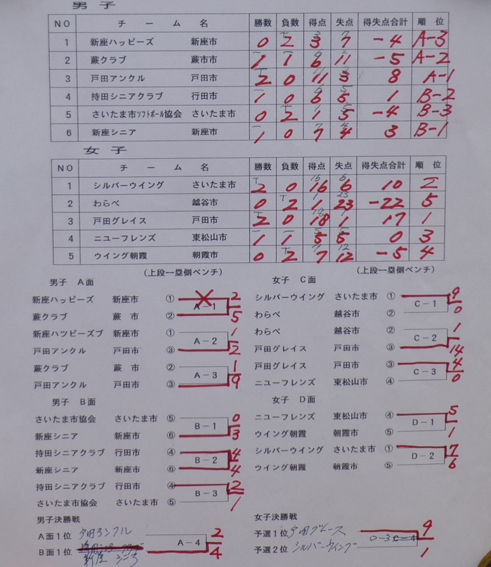 男子
NO チーム名 勝数 負数 得点 失点 得失点合計 順位
1 新座ハッピーズ 新座市 0 2 3 7 -4 A-3
2 蕨クラブ 蕨市市 1 1 6 11 -5 A-2
3 戸田アンクル 戸田市 2 0 11 3 8 A-1
4 持田シニアクラブ 行田市 1 0 6 5 1 B-2
5 さいたま市ソフトボール協会 さいたま市 0 2 1 5 -4 B-3
6 新座シニア 新座市 1 0 7 4 3 B-1
女子
NO チーム名 勝数 負数 得点 失点 得失点合計 順位
1 シルバーウイング さいたま市 2 0 16 6 10 2
2 わらべ 越谷市 0 2 1 23 -22 5
3 戸田グレイス 戸田市 2 0 18 1 17 1
4 ニユーフレンズ 東松山市 1 1 5 5 0 3
5 ウイング朝霞 朝霞市 0 2 7 12 -5 4
男子 A面 (上段一塁側ベンチ)
新座ハッピーズ 新座市 ① A-1 2
蕨クラブ 蕨市 ② 5
新座ハツピーズブ 新座市 ① A-2 1
戸田アンクル 戸田市 ③ 2
蕨クラブ 蕨市 ② A-3 1
戸田アンクル 戸田市 ③ 9
男子 B面
さいたま市協会 さいたま市 ⑤ B-1 0
新座シニア 新座市 ⑥ 3
持田シニアクラブ 行田市 ④ B-2 4
新座シニア 新座市 ⑥ 4
持田シニアクラブ 行田市 ④ B-3 2
さいたま市協会 さいたま市 ⑤ 1
男子決勝戦
A面1位 戸田アンクル A-4 2
B面1位 新座シニア 4
女子 C面 (上段一塁側ベンチ)
シルバーウイング さいたま市 ① C-1 9
わらべ 越谷市 ② 0
わらべ 越谷市 ② C-2 1
戸田グレイス 戸田市 ③ 14
戸田グレイス 戸田市 ③ C-3 4
ニユーフレンズ 東松山市 ④ 0
女子 D面
ニユーフレンズ 東松山市 ④ D-1 5
ウイング朝霞 朝霞市 ⑤ 1
シルバーウイング さいたま市 ① D-2 7
ウイング朝霞 朝霞市 ⑤ 6
女子決勝戦
予選1位 戸田グレース D-3 9
予選2位 シルバーウイング 1